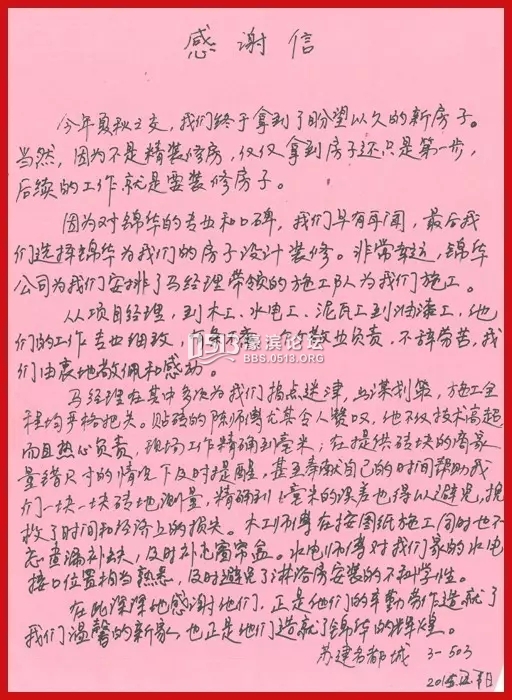 感谢信
今年夏秋之交，我们终于拿到了盼望以久的新房子。
当然，因为不是精装修房，仅仅拿到房子还只是第一步，
后续的工作就是要装修房子。
因为对锦华的专业和口碑，我们早有耳闻，最后我
们选择锦华为我们的房子设计装修。非常幸运，锦华
公司为我们安排了马经理带领的施工队为我们施工。
从项目经理，到木工、水电工、泥瓦工到油漆工，他
们的工作专业细致，个个敬业负责，不辞劳苦，我
们由衷地敬佩和感动。
濠滨论坛
BBS.0513.ORG
马经理在其中多次为我们指点迷津，出谋划策，施工全
程均严格把关。贴砖的陈师傅尤其令人赞叹，他不仅技术高超
而且热心负责，现场工作精确到毫米；在提供砖块的商家
量错尺寸的情况下及时提醒，甚至奉献自己的时间帮助我
们一块一块砖地测量，精确到毫米的误差也得以避免，挽
救了时间和经济上的损失。木工师傅在按图纸施工同时也不
忘查漏补缺，及时补上窗帘盒。水电师傅对我们家的水电
接口位置相当熟悉，及时避免了淋浴房安装的不科学性。
在此深深地感谢他们，正是他们的辛勤劳作造就了
我们温馨的新家，也正是他们造就了锦华的辉煌。
苏建名都城 3-503